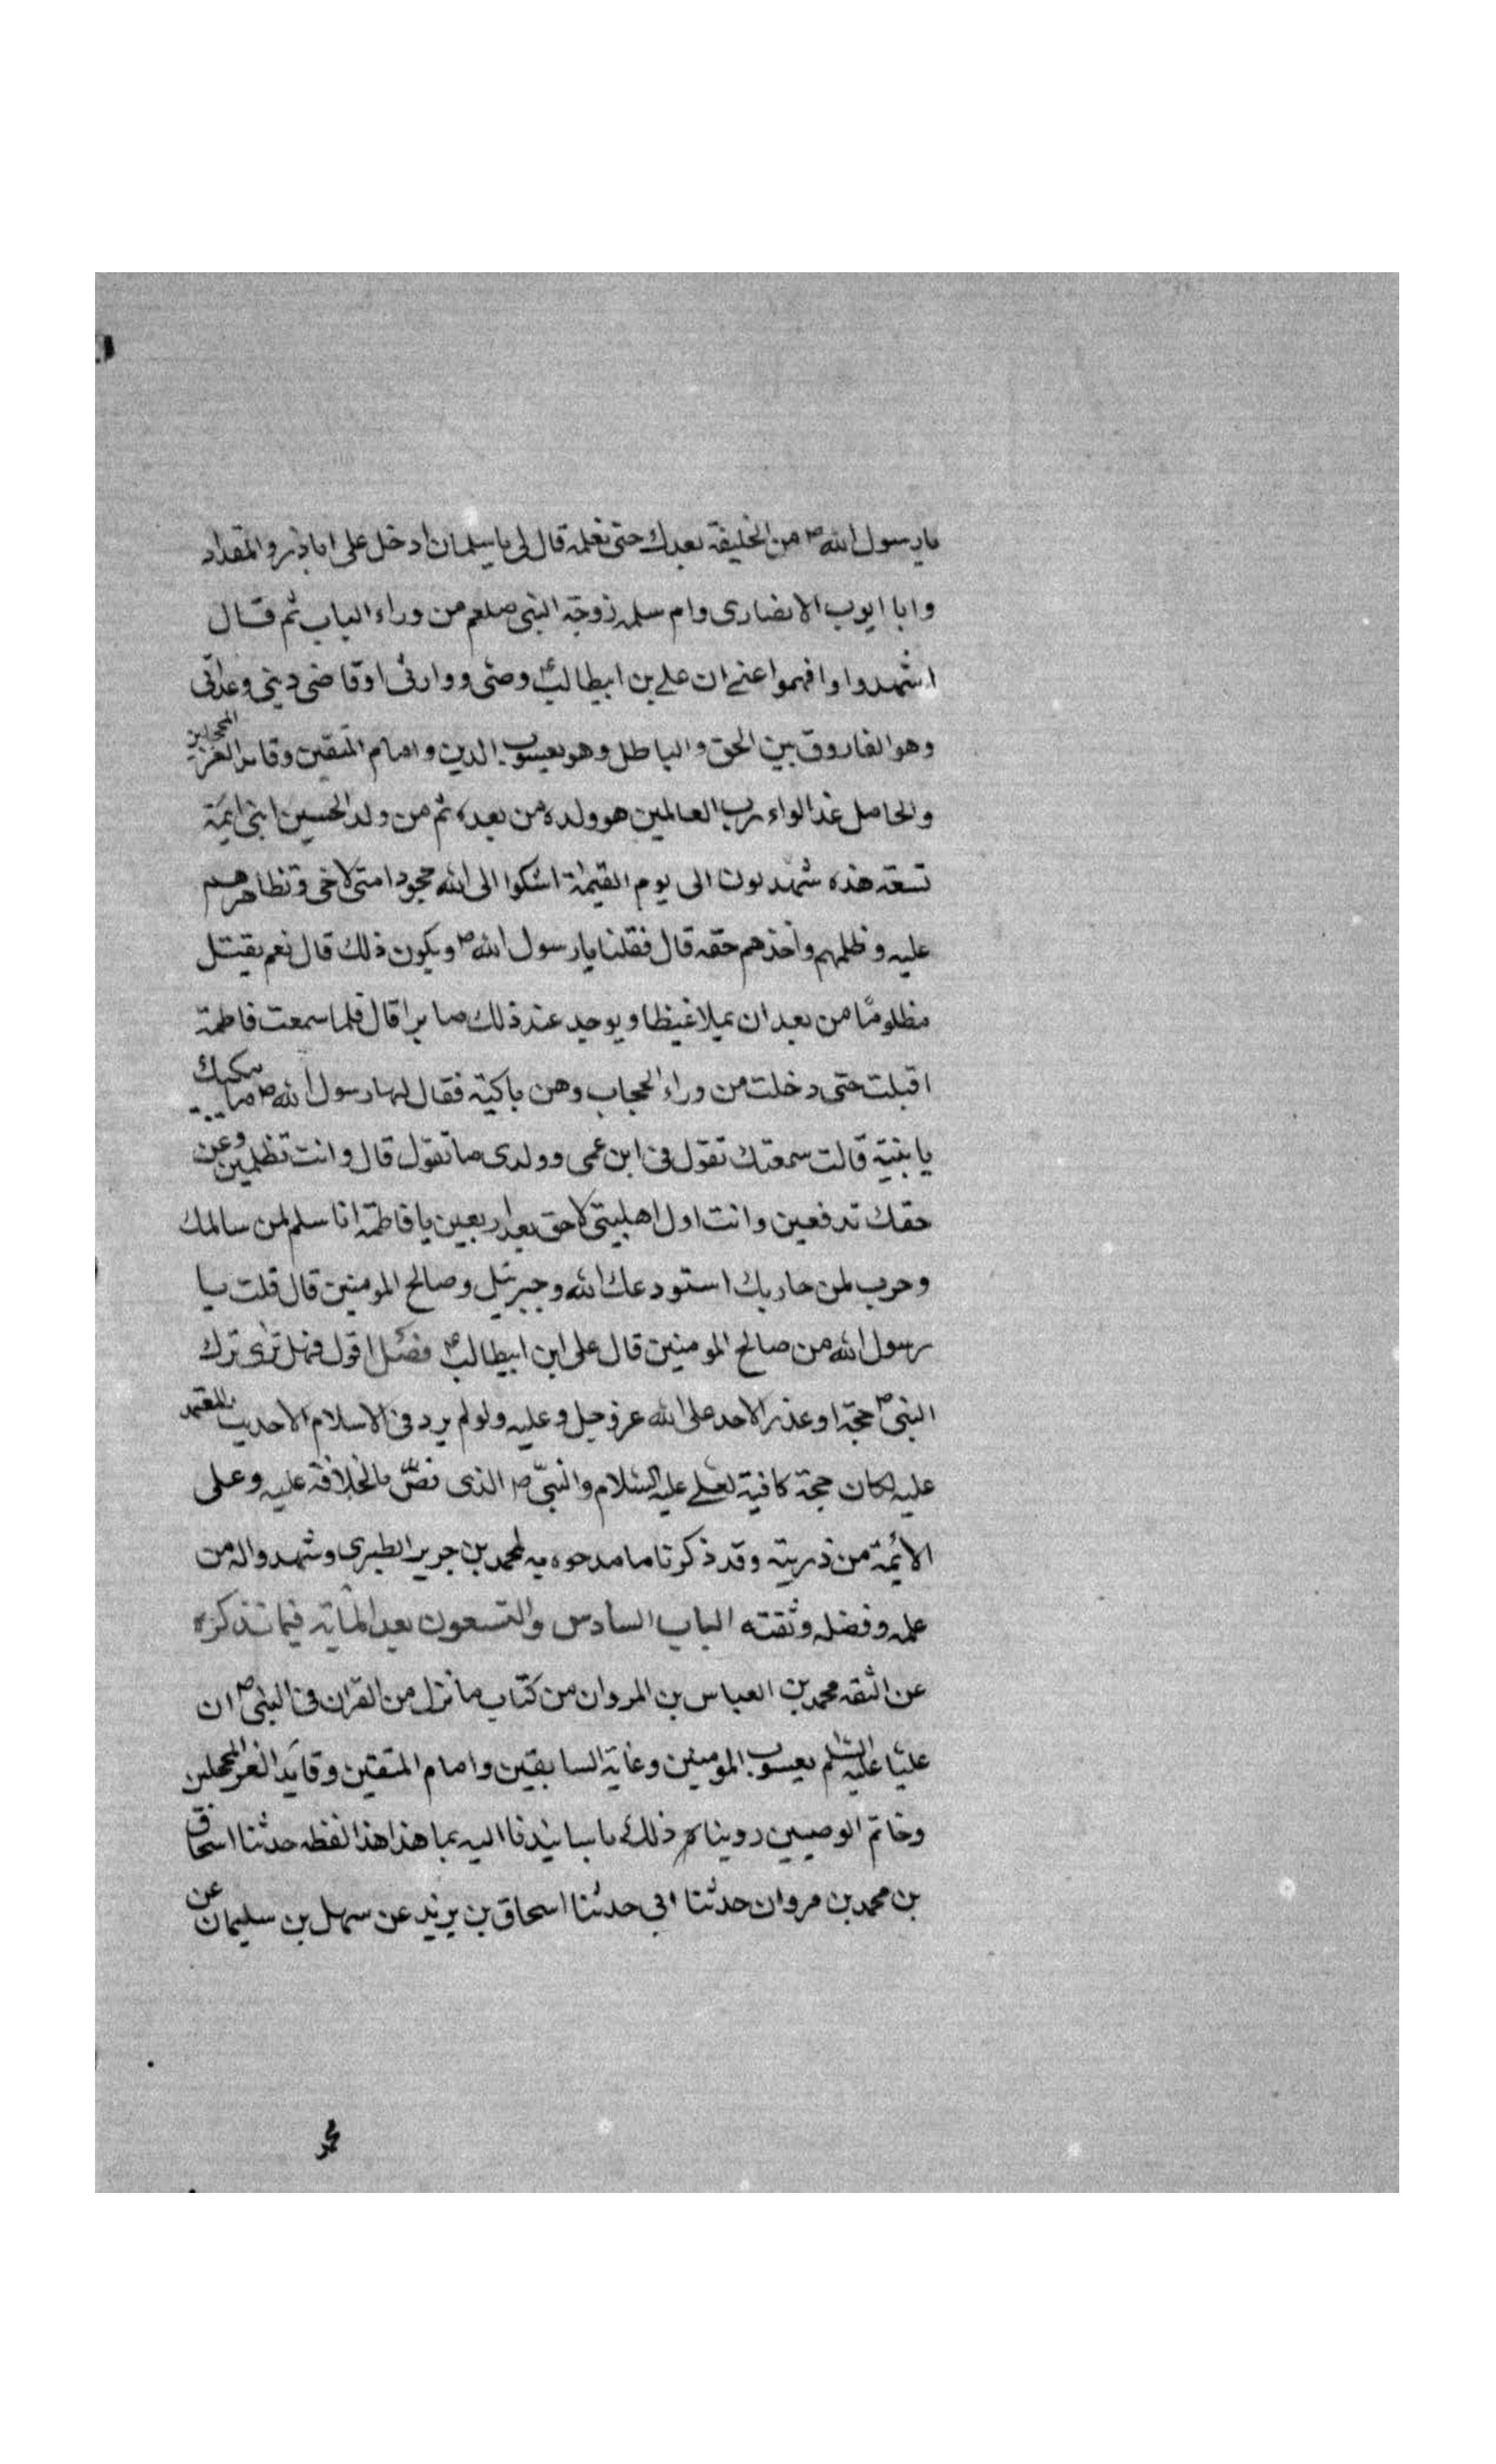 يارسول الله ص من الخليفة بعدك حتى نعلمه قال لى يا سلمان ادخل على اباذر والمقداد
وابا ايوب الانصارى وام سلمه زوجة النبى صلعم من وراء الباب ثم قال
اشهدوا وافهموا عنى ان على بن ابيطالب ع وصى ووارثى اوقاضى دينى وعدتى
وهو الفاروق بين الحق والباطل وهو يعسوب الدين وامام المتقين وقائد الغر المحجلين
والحامل غدا لواء رب العالمين هو وولده من بعده ثم من ولد الحسين ابنى ائمة
تسعة هذه شهديون الى يوم القيمة اشكوا الى الله جحود امتى لاخى وتظاهرهم
عليه وظلمهم واخذهم حقه قال فقلنا يارسول الله ص ويكون ذلك قال نعم يقتل
مظلومًا من بعد ان يملا غيظا ويوجد عند ذلك صابرا قال فلما سمعت فاطمة
اقبلت حتى دخلت من وراء الحجاب وهى باكية فقال لها رسول الله ص ما يبكيك
يا بنية قالت سمعتك تقول فى ابن عمى وولدى ما تقول قال وانت تظلمين وعن
حقك تدفعين وانت اول اهلبيتى لاحق بعد اربعين يا فاطمة انا سلم لمن سالمك
وحرب لمن حاربك استودعك الله وجبرئيل وصالح المومنين قال قلت يا
رسول الله من صالح المومنين قال على ابن ابيطالب ع فصل اقول فهل ترى ترك
النبى ص حجة او عذرا لاحد على الله عز وجل وعليه ولو لم يرد فى الاسلام الا حديث المعتمد
عليه لكان حجة كافية لعلى عليه السلام والنبى ص الذى نصّ بالخلافة عليه وعلى
الائمة من ذريته وقد ذكرنا ما مدحوه به لمحمد بن جرير الطبرى وشهدوا له من
علمه وفضله وثقته الباب السادس والتسعون بعد المأية فيما نذكره
عن الثقه محمد بن العباس بن المروان من كتاب ما نزل من القران فى النبى ص ان
عليّا عليه السلم يعسوب المومنين وغاية السابقين وامام المتقين وقائد الغر المحجلين
وخاتم الوصيين روينا ذلك باسانيدنا اليه بما هذا هذا لفظه حدثنا اسحاق
بن محمد بن مروان حدثنا ابى حدثنا اسحاق بن يزيد عن سهل بن سليمان عن